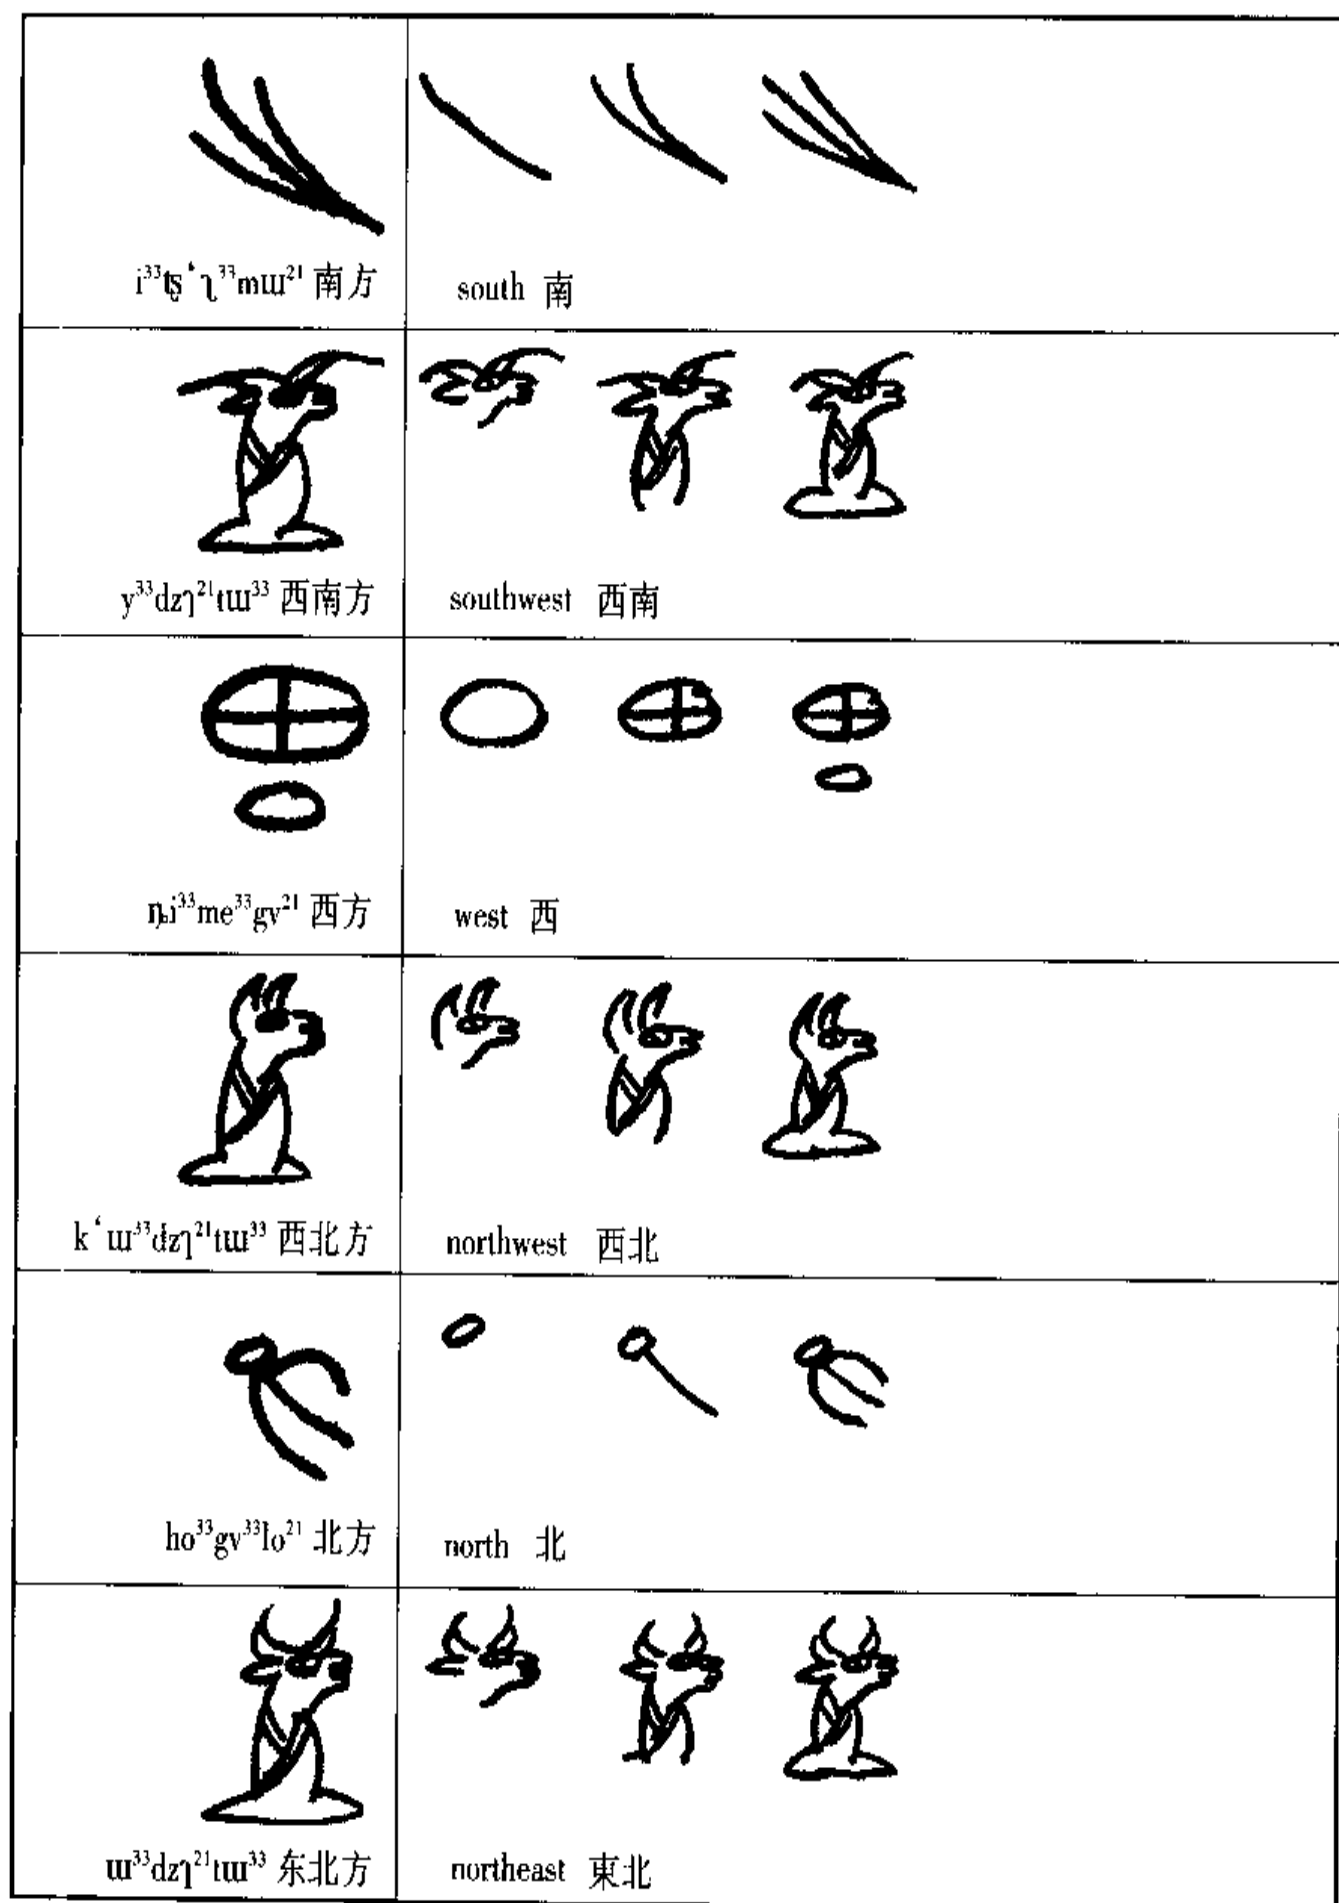 i³³tʂ‘ʅ³³mɯ²¹ 南方
south 南
y³³dzʅ²¹tɯ³³ 西南方
southwest 西南
ȵi³³me³³gv²¹ 西方
west 西
k‘ɯ³³dzʅ²¹tɯ³³ 西北方
northwest 西北
ho³³gv³³lo²¹ 北方
north 北
ɯ³³dzʅ²¹tɯ³³ 东北方
northeast 東北